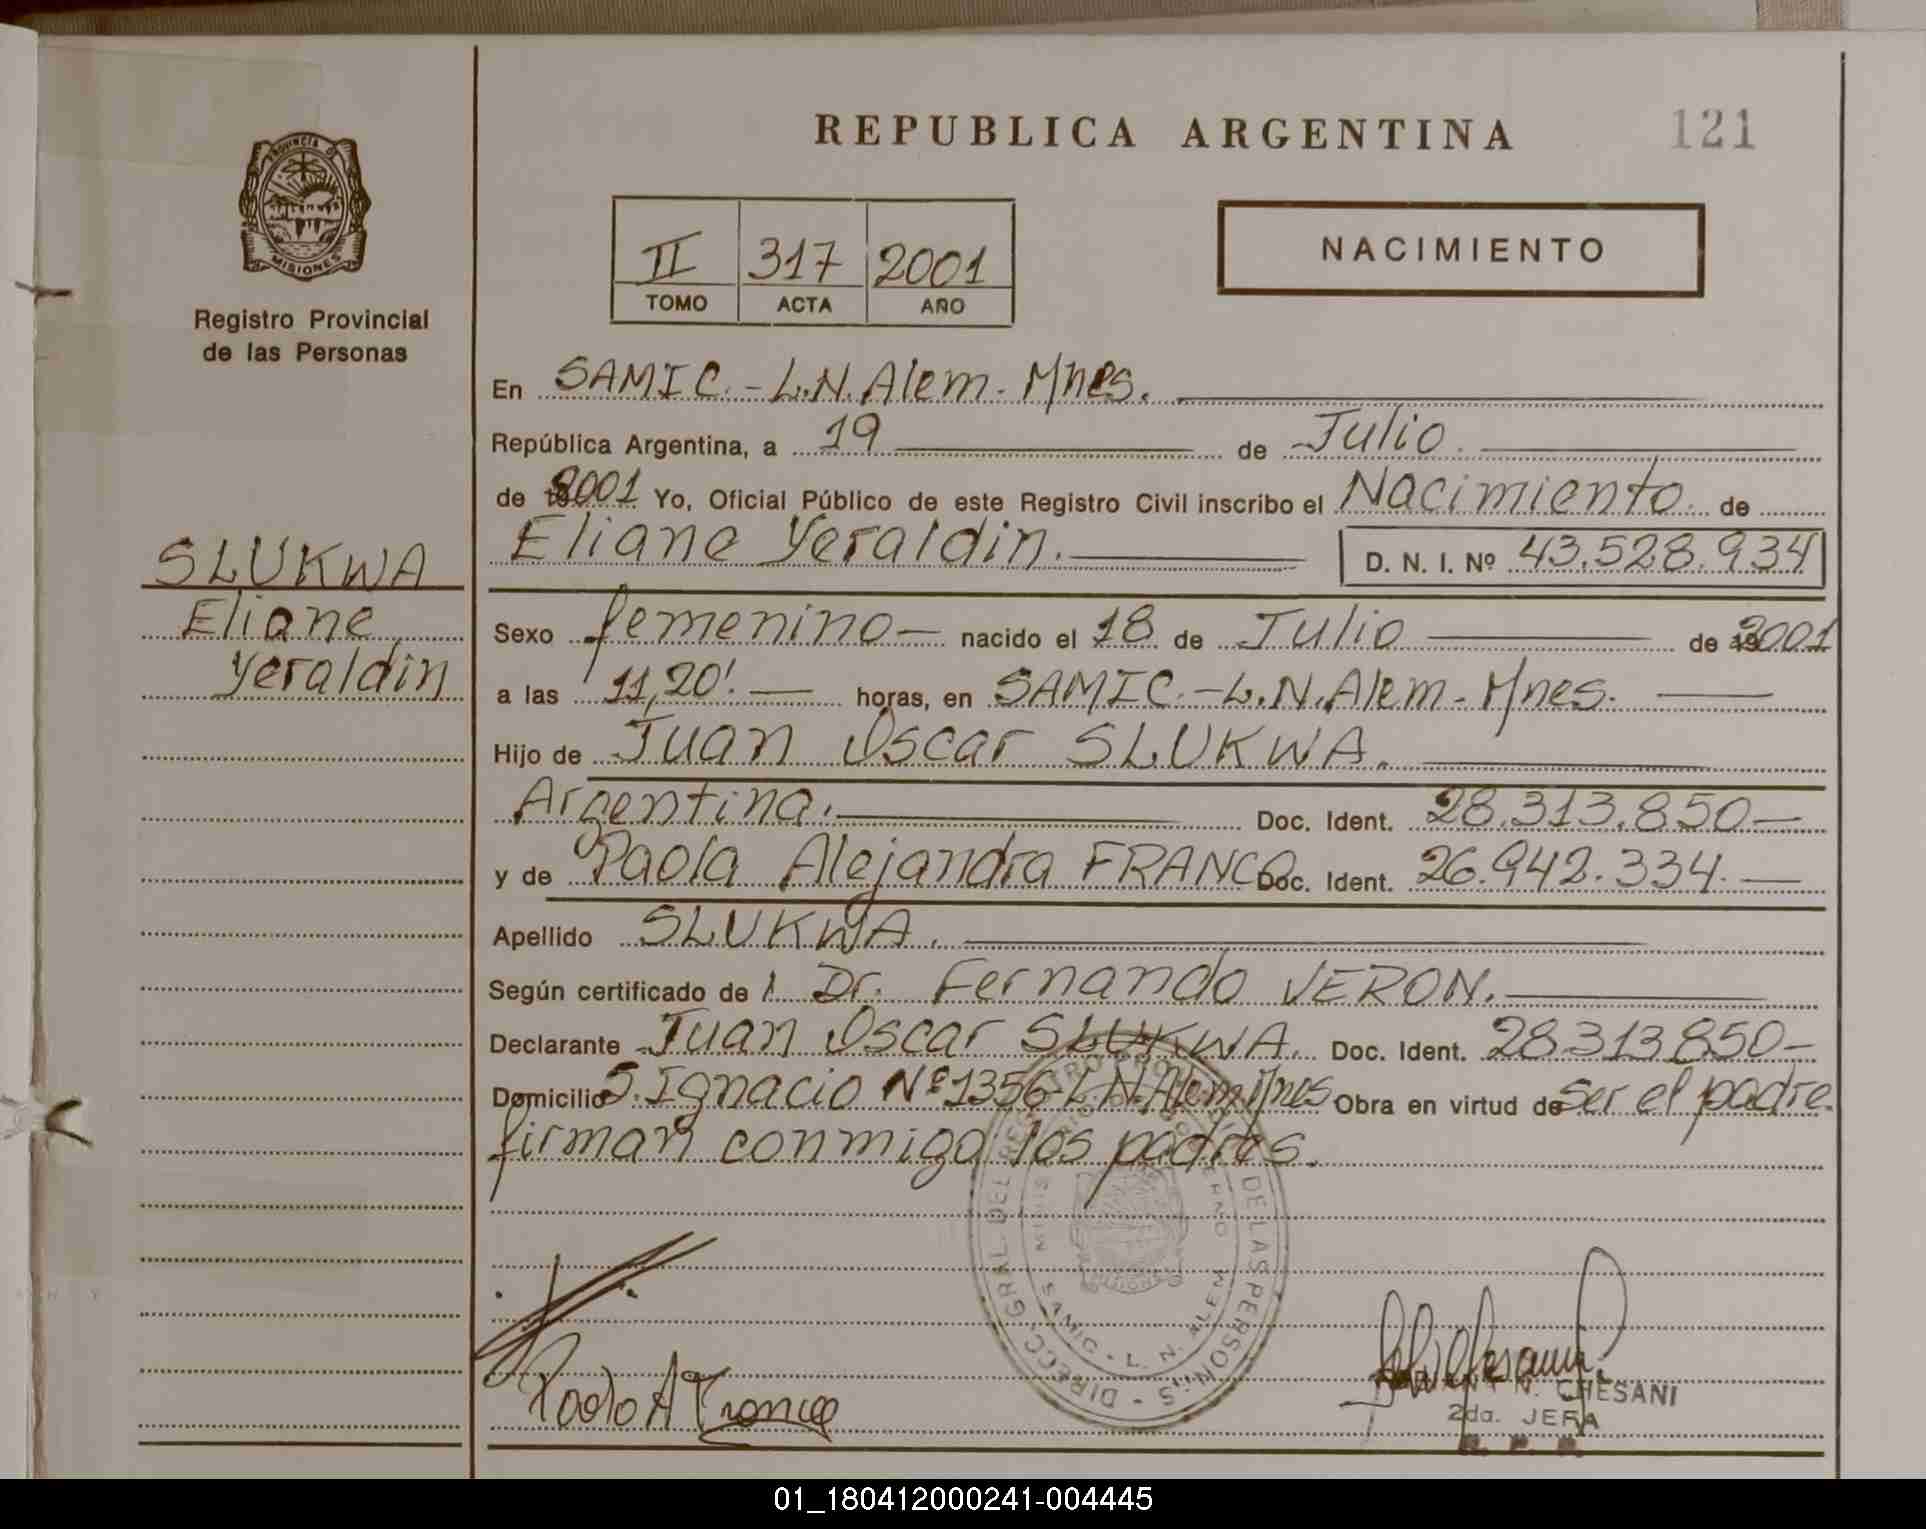 REPUBLICA ARGENTINA
121
PROVINCIA DE
MISIONES
Registro Provincial
de las Personas
II 317 2001
TOMO ACTA AÑO
NACIMIENTO
En SAMIC.-L.N.Alem-Mnes.
República Argentina, a 19 de Julio.
de 2001 Yo, Oficial Público de este Registro Civil inscribo el Nacimiento de
Eliane Yeraldin. D. N. I. Nº 43.528.934
SLUKWA
Eliane
Yeraldin
Sexo femenino nacido el 18 de Julio de 2001
a las 11,20'. horas, en SAMIC.-L.N.Alem-Mnes.
Hijo de Juan Oscar SLUKWA.
Argentina. Doc. Ident. 28.313.850
y de Paola Alejandra FRANCO Doc. Ident. 26.942.334.
Apellido SLUKWA.
Según certificado de Dr. Fernando VERON.
Declarante Juan Oscar SLUKWA. Doc. Ident. 28313850
Domicilio S.Ignacio Nº1356-L.N.Alem Mnes Obra en virtud de ser el padre.
firman conmigo los padres.
DIRECC. GRAL. DEL REGISTRO PROVINCIAL DE LAS PERSONAS
SAMIC - L. N. ALEM
Paola A Franco
N. CHESANI
2da. JEFA
01_180412000241-004445